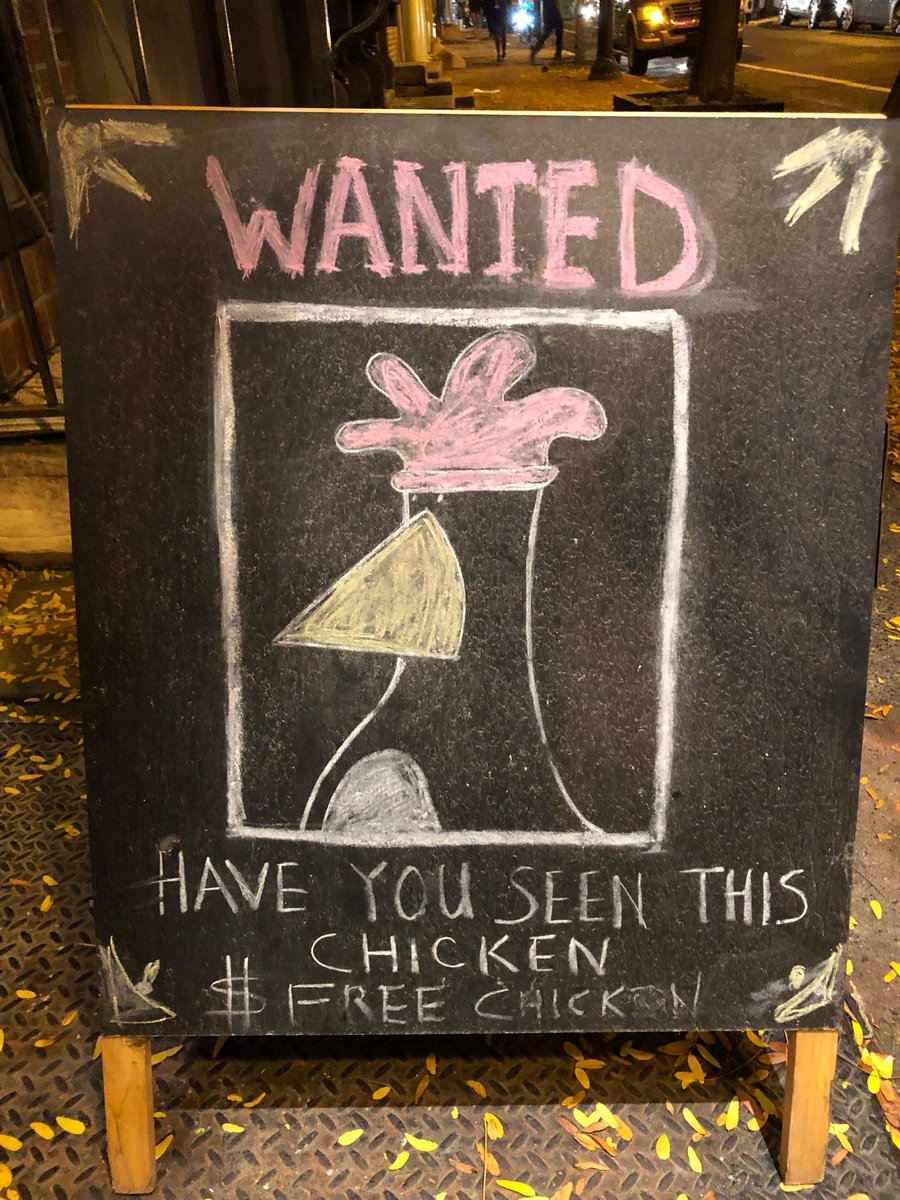 WANTED
HAVE YOU SEEN THIS
CHICKEN
$ FREE CHICKEN